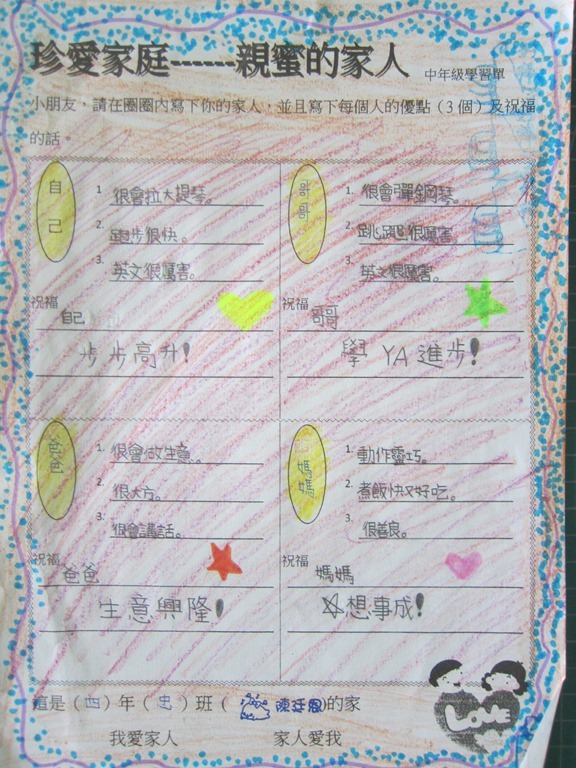 珍愛家庭------親蜜的家人 中年級學習單
小朋友，請在圈圈內寫下你的家人，並且寫下每個人的優點（3 個）及祝福
的話。
自己
1. 很會拉大提琴。
2. 跑步很快。
3. 英文很厲害。
祝福
自己
步步高升!
哥哥
1. 很會彈鋼琴。
2. 跳跑很厲害。
3. 英文很厲害。
祝福
哥哥
學 YA 進步!
爸爸
1. 很會做生意。
2. 很大方。
3. 很會講話。
祝福
爸爸
生意興隆!
媽媽
1. 動作靈巧。
2. 煮飯快又好吃。
3. 很善良。
祝福
媽媽
想事成!
這是（四）年（忠）班（ 陳廷恩）的家
我愛家人 家人愛我
Love